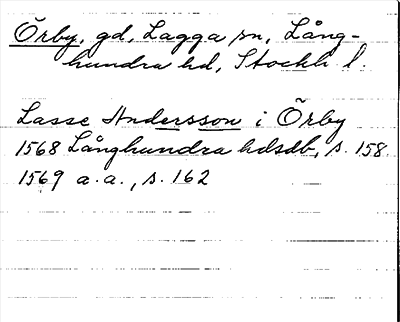 Örby, gd, Lagga sn, Lång-
hundra hd, Stockh. l.
Lasse Andersson i Örby
1568 Långhundra hdsdb, s. 158
1569 a.a., s. 162